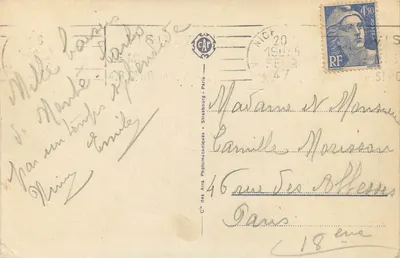 Mille baisers
de Monte-Carlo
par un temps splendide
Emile
Cie des Arts Photomécaniques - Strasbourg - Paris
NICE
20
47
4F50
RF
Madame et Monsieur
Camille Morisson
46 rue des Abbesses
Paris
18 eme